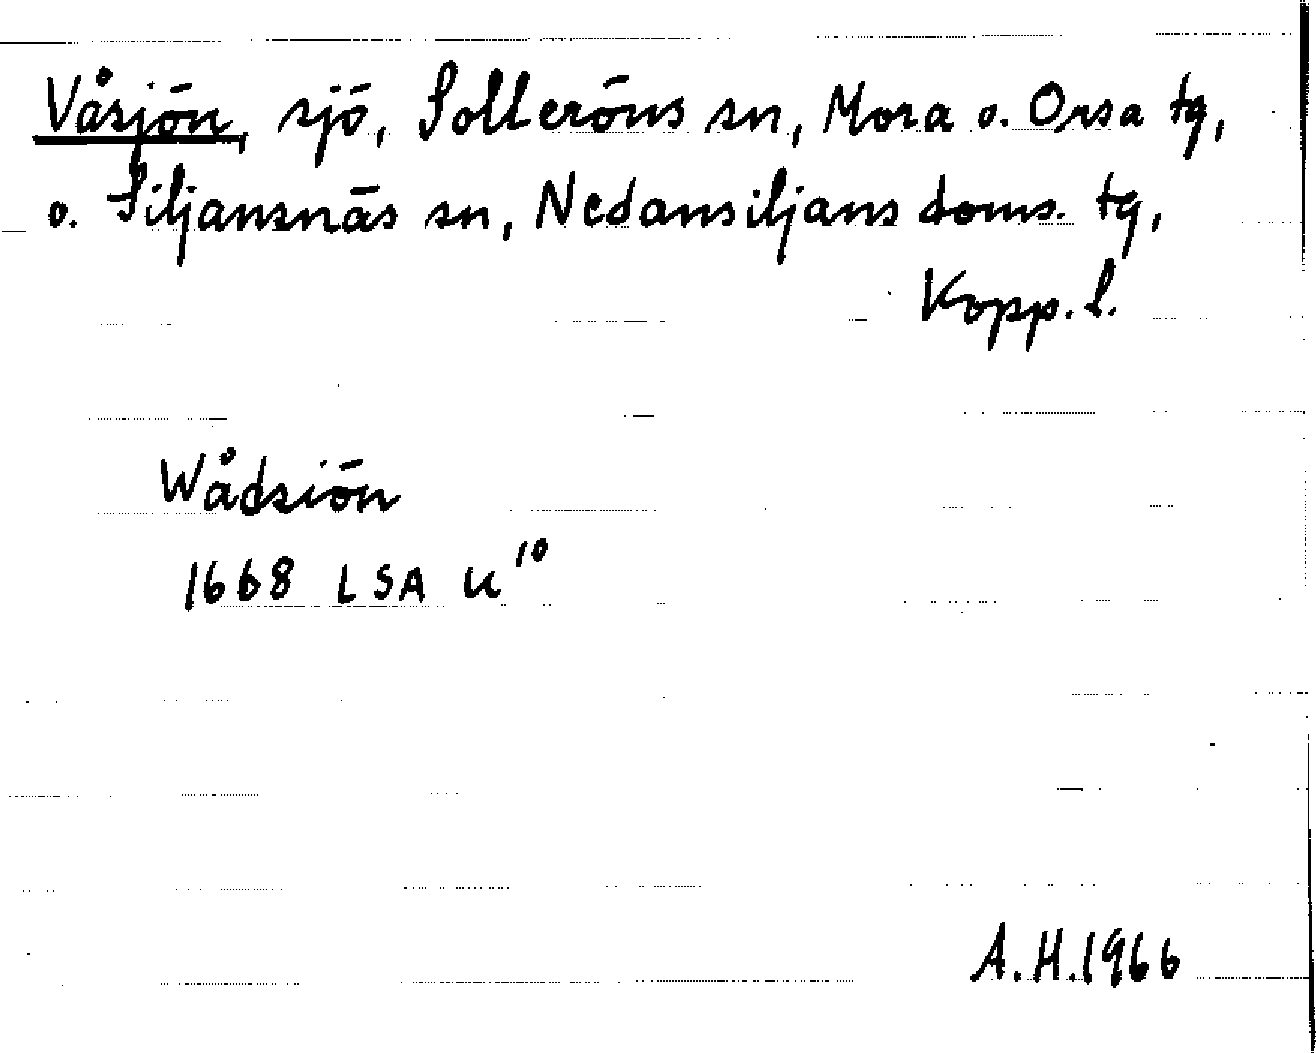 Våsjön, sjö, Solleröns sn, Mora o. Orsa tg,
o. Siljansnäs sn, Nedansiljans doms. tg,
Kopp. l.
Wådsiön
1668 LSA U¹⁰
A.H.1966